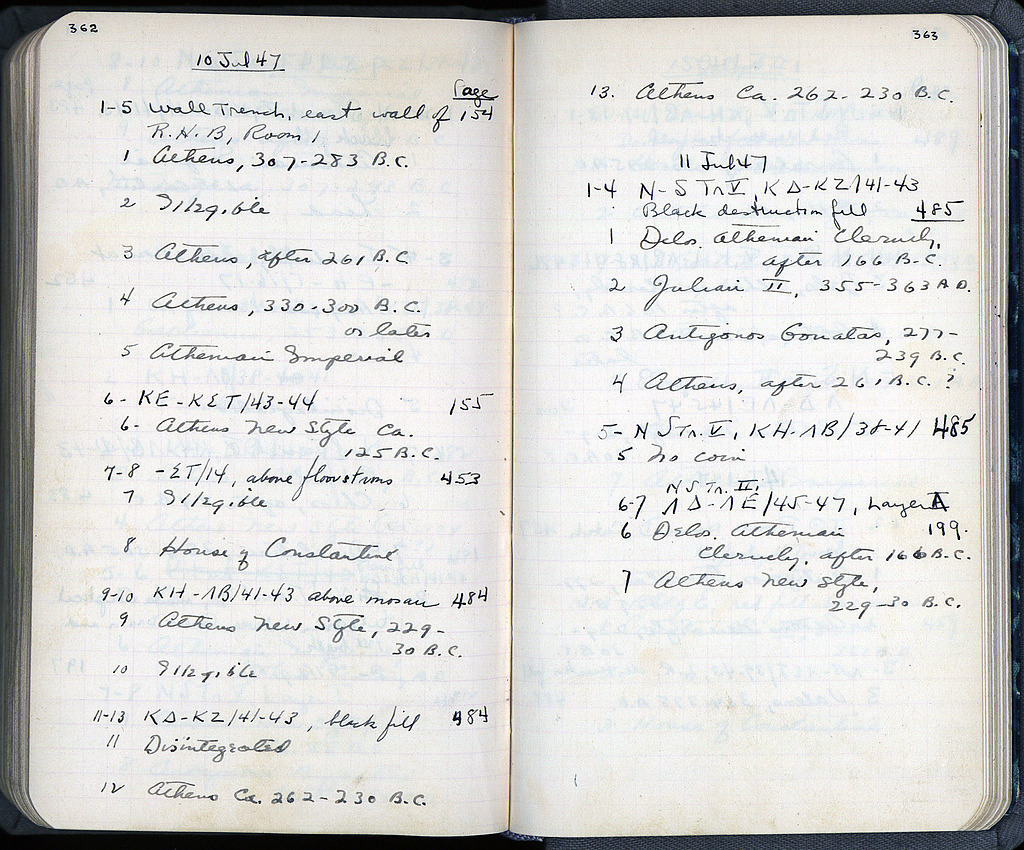 362
10 Jul 47
Page
1-5 Wall Trench, east wall of 154
R.H.B, Room 1
1 Athens, 307-283 B.C.
2 Illegible
3 Athens, after 261 B.C.
4 Athens, 330-300 B.C.
or later
5 Athenian Imperial
6- ΚΕ-ΚΣΤ/43-44 155
6- Athens New Style Ca.
125 B.C.
7-8 -ΣΤ/14, above floor 453
7 Illegible
8 House of Constantine
9-10 ΚΗ-ΛΒ/41-43 above mosaic 484
9 Athens New Style, 229-
30 B.C.
10 Illegible
11-13 ΚΔ-ΚΖ/41-43, black fill 484
11 Disintegrated
12 Athens Ca. 262-230 B.C.
363
13. Athens Ca. 262-230 B.C.
11 Jul 47
1-4 N-S Tr. V, ΚΔ-ΚΖ/41-43
Black destruction fill 485
1 Delos. Athenian Cleruchy,
after 166 B.C.
2 Julian II, 355-363 A.D.
3 Antigonos Gonatas, 277-
239 B.C.
4 Athens, after 261 B.C. ?
5- N S Tr. V, ΚΗ-ΛΒ/38-41 485
5 No coin
N S Tr. II,
6-7 ΛΔ-ΛΕ/45-47, Layer A
6 Delos. Athenian 199.
Cleruchy, after 166 B.C.
7 Athens New Style,
229-30 B.C.